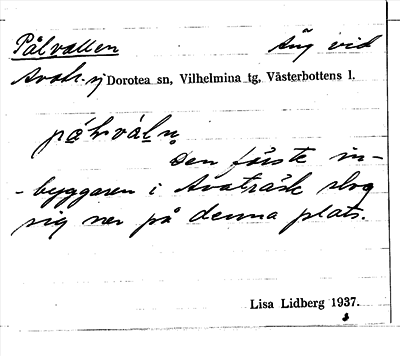 Pålvallen Äng vid
Avatr. nj Dorotea sn, Vilhelmina tg, Västerbottens l.
Den förste in-
-byggaren i Avaträsk slog
sig ner på denna plats.
Lisa Lidberg 1937.